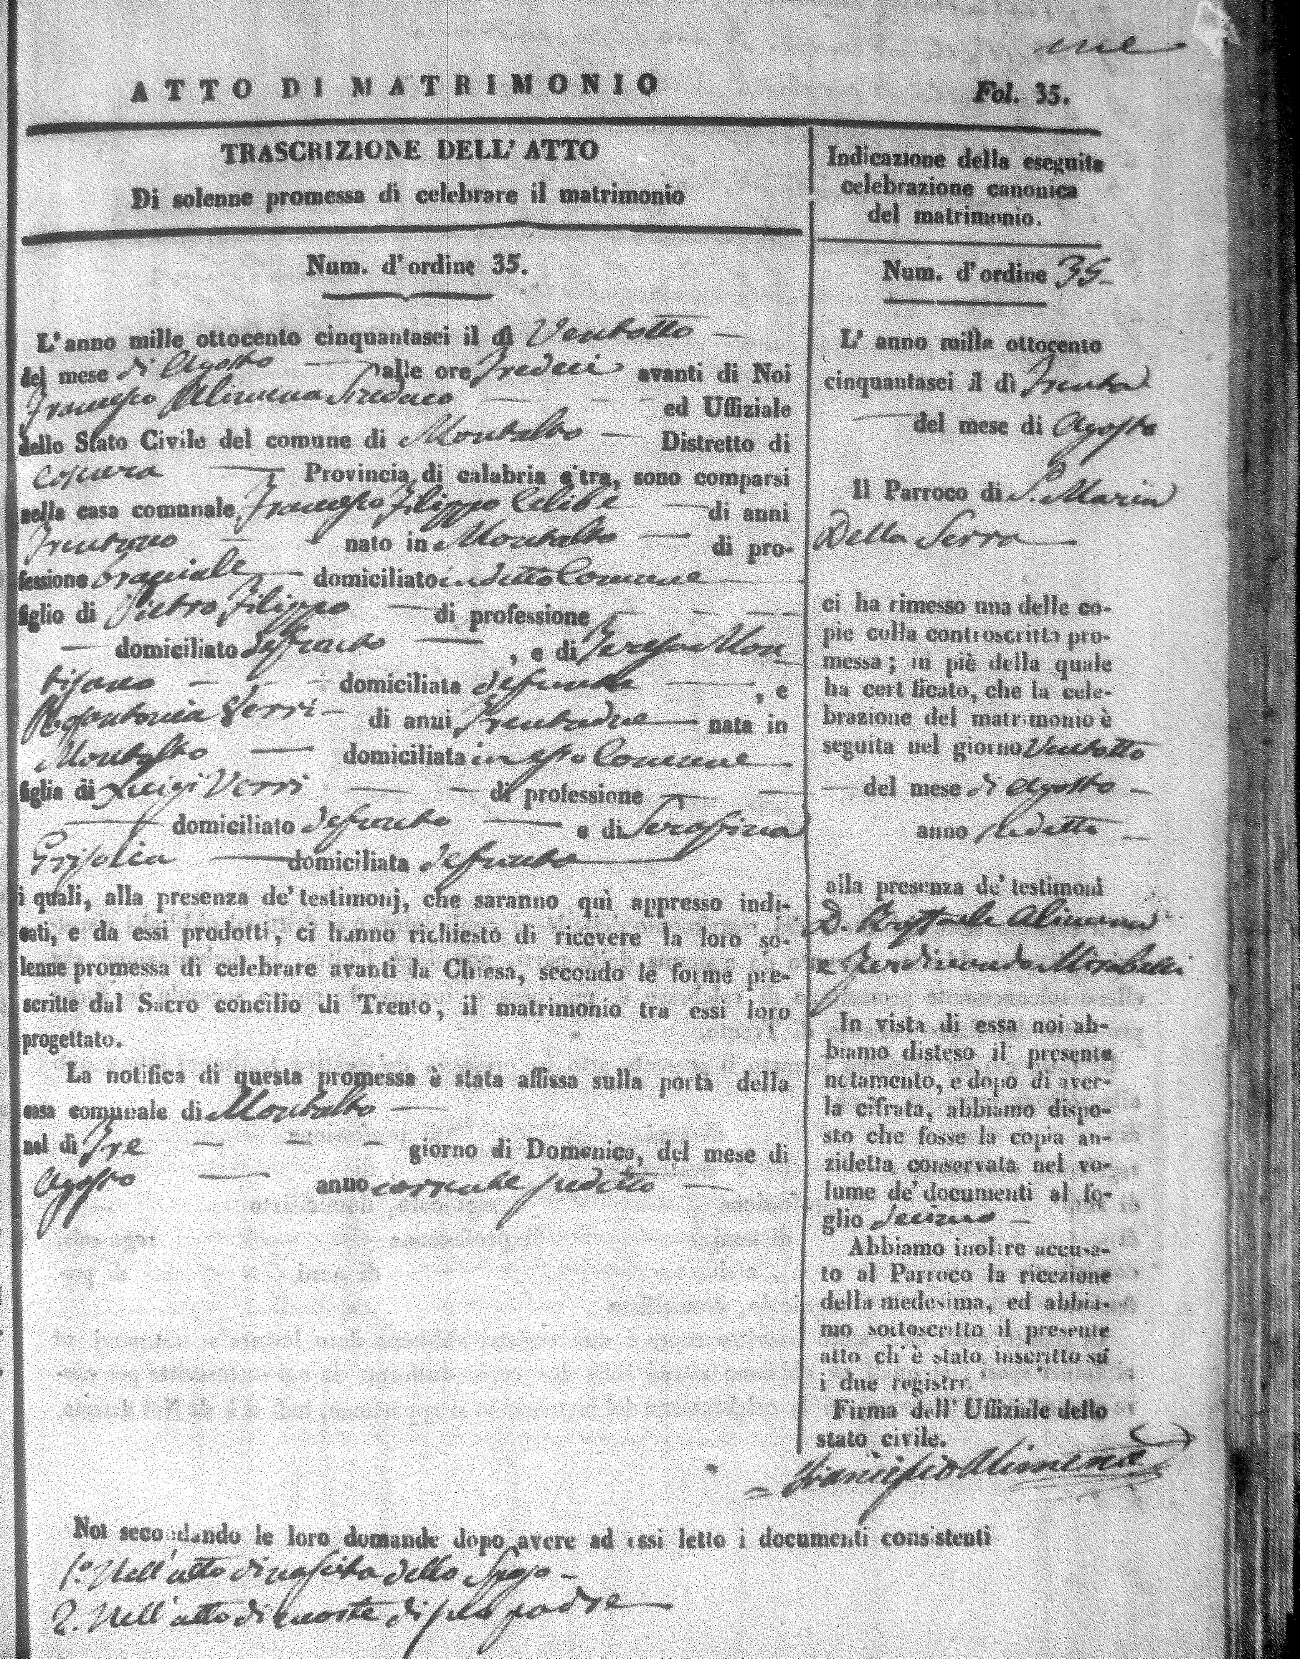 ATTO DI MATRIMONIO
Fol. 35.
TRASCRIZIONE DELL' ATTO
Di solenne promessa di celebrare il matrimonio
Num. d'ordine 35.
L'anno mille ottocento cinquantasei il dì Ventotto
del mese di Agosto alle ore Tredeci avanti di Noi
Francesco Alimena Sindaco ed Uffiziale
dello Stato Civile del comune di Montalto Distretto di
Cosenza Provincia di calabria citra, sono comparsi
nella casa comunale Francesco Filippo Celibe di anni
Trentuno nato in Montalto di pro-
fessione bracciale domiciliato in detto Comune
figlio di Pietro Filippo di professione
domiciliato defunto, e di Teresa Mon
tisano domiciliata defunta, e
Verri di anni Trentadue nata in
Montalto domiciliata in esso Comune
figlia di Luigi Verri di professione
domiciliato defunto e di Serafina
Grisolia domiciliata defunta
i quali, alla presenza de' testimonj, che saranno quì appresso indi-
cati, e da essi prodotti, ci hanno richiesto di ricevere la loro so-
lenne promessa di celebrare avanti la Chiesa, secondo le forme pre-
scritte dal Sacro concilio di Trento, il matrimonio tra essi loro
progettato.
La notifica di questa promessa è stata affissa sulla porta della
casa comunale di Montalto
nel dì Tre giorno di Domenica, del mese di
Agosto anno corrente sudetto
Indicazione della eseguita
celebrazione canonica
del matrimonio.
Num. d'ordine 35
L' anno mille ottocento
cinquantasei il dì Trenta
del mese di Agosto
Il Parroco di S. Maria
Della Serra
ci ha rimesso una delle co-
pie colla controscritta pro-
messa; in piè della quale
ha certificato, che la cele-
brazione del matrimonio è
seguita nel giorno Ventotto
del mese di Agosto
anno sudetto
alla presenza de' testimoni
D. Raffaele Alimena
e Ferdinando Mirabelli
In vista di essa noi ab-
biamo disteso il presente
notamento, e dopo di aver-
la cifrata, abbiamo dispo-
sto che fosse la copia an-
zidetta conservata nel vo-
lume de' documenti al fo-
glio decimo
Abbiamo inoltre accusa-
to al Parroco la ricezione
della medesima, ed abbia-
mo sottoscritto il presente
atto ch' è stato inscritto su
i due registri.
Firma dell' Uffiziale dello
stato civile.
Francesco Alimena
Noi secondando le loro domande dopo avere ad essi letto i documenti consistenti
1.° Nell' atto di nascita dello Sposo
2. Nell' atto di morte di suo padre